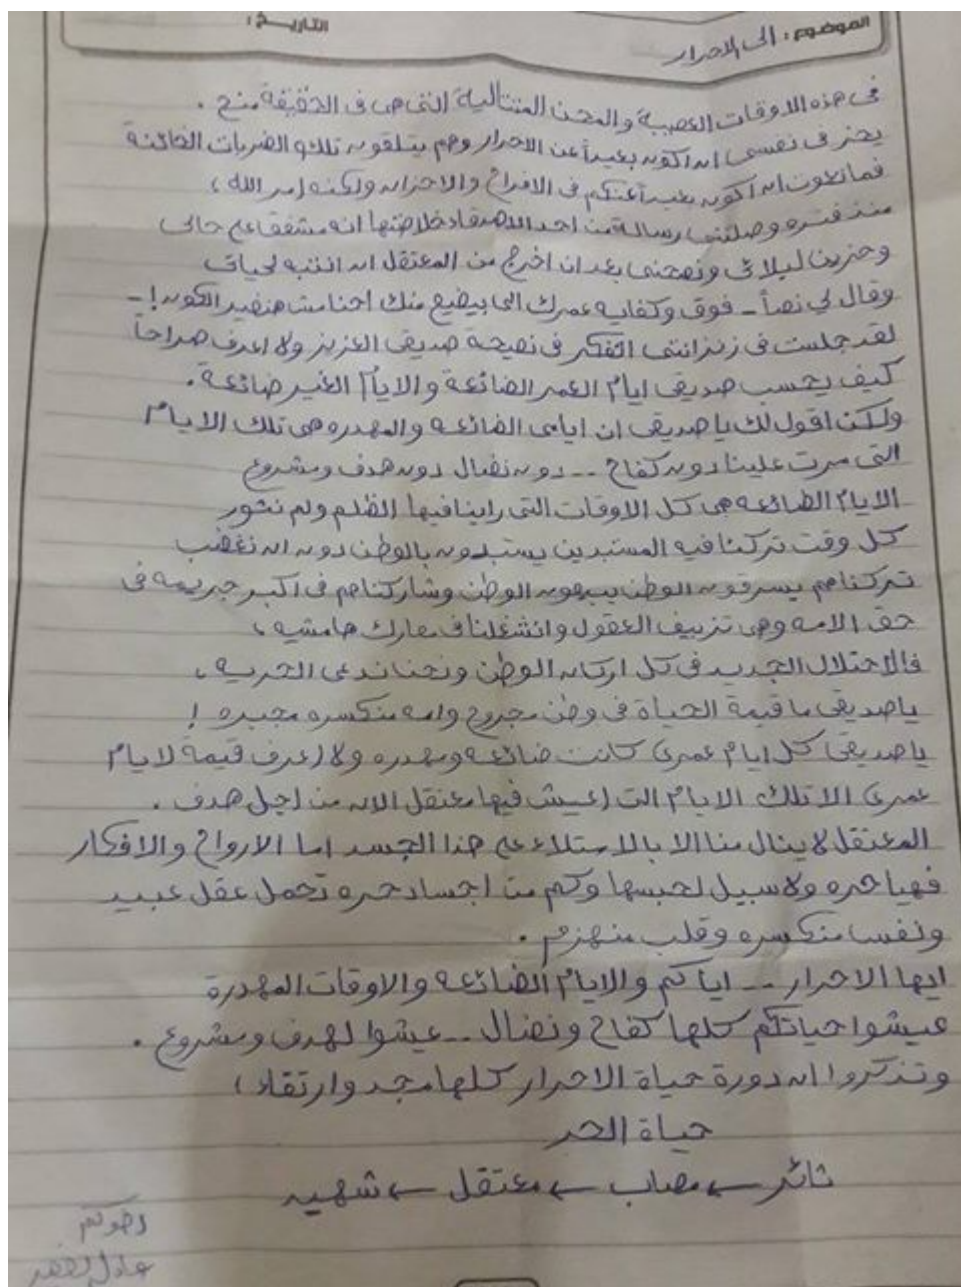 الموضوع : الى الاحرار التاريخ :
فى هذه الاوقات العصيبة والمحن المتتالية التى هى فى الحقيقة منح .
يحز فى نفسى ان اكون بعيداً عن الاحرار وهم يتلقون تلك الضربات الخائنة
فما تعودت ان اكون بعيداً عنكم فى الافراح والاحزان ولكنه امر الله ،
منذ فتره وصلتنى رسالة من احد الاصدقاء خلاصتها انه مشفق على حالى
وحزين لبلائى ونصحنى بعد ان اخرج من المعتقل ان انتبه لحياتى
وقال لي نصاً - فوق وكفايه عمرك الى بيضيع منك احنا مش هنغير الكون ! -
لقد جلست فى زنزانتى اتفكر فى نصيحة صديقى العزيز ولا اعرف صراحاً
كيف يحسب صديقى ايام العمر الضائعة والايام الغير ضائعة .
ولكن اقول لك يا صديقى ان ايامى الضائعه والمهدره هى تلك الايام
التى مرت علينا دون كفاح -- دون نضال دون هدف ومشروع
الايام الضائعه هى كل الاوقات التى راينا فيها الظلم ولم نثور
كل وقت تركنا فيه المستبدين يستبدون بالوطن دون ان نغضب
تركناهم يسرقون الوطن يبيعون الوطن وشاركناهم فى اكبر جريمه فى
حق الامه وهى تزييف العقول وانشغلنا فى معارك هامشيه ،
فالاحتلال الجديد فى كل اركان الوطن ونحن ندعى الحريه ،
يا صديقى ما قيمة الحياة فى وطن مجروح وامه منكسره مجبره !
يا صديقى كل ايام عمرى كانت ضائعه ومهدره ولا اعرف قيمة لايام
عمرى الا تلك الايام التى اعيش فيها معتقل الان من اجل هدف .
المعتقل لا ينال منا الا بالاستلاء على هذا الجسد اما الارواح والافكار
فهيا حره ولا سبيل لحبسها وكم من اجساد حره تحمل عقل عبيد
ونفسا منكسره وقلب منهزم .
ايها الاحرار -- اياكم والايام الضائعه والاوقات المهدرة
عيشوا حياتكم كلها كفاح ونضال -- عيشوا لهدف ومشروع .
وتذكروا ان دورة حياة الاحرار كلها مجد وارتقاء ،
حياة الحر
ثائر ← مصاب ← معتقل ← شهيد
اخوكم
عادل